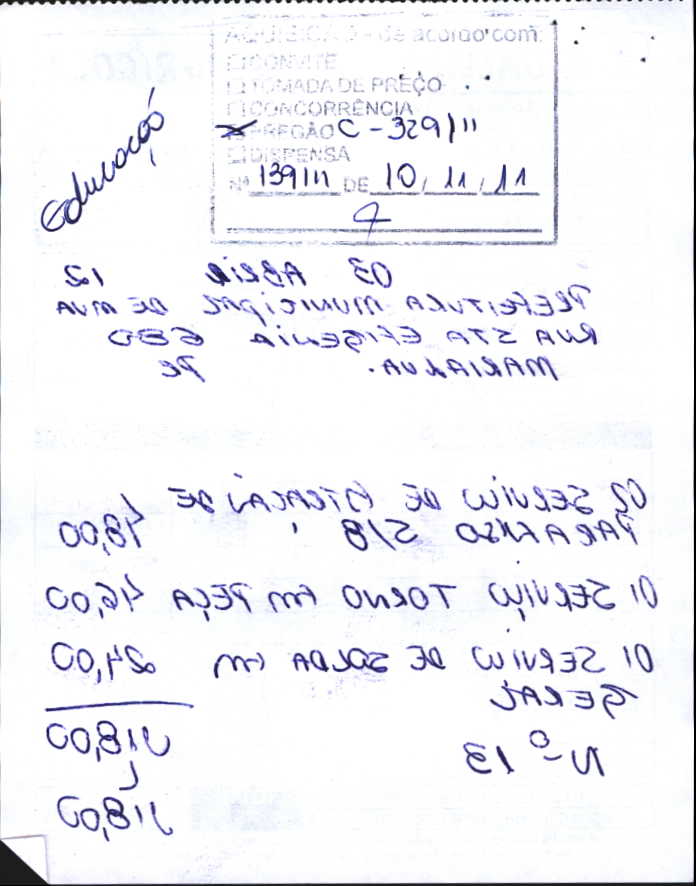 AQUISIÇÃO - de acordo com:
☐ CONVITE
☐ TOMADA DE PREÇO
☐ CONCORRÊNCIA
☒ PREGÃO C - 329/11
☐ DISPENSA
Nº 139/11 DE 10/11/11
Educação
03 ABRIL 12
PREFEITURA MUNICIPAL DE
RUA STA EFIGENIA 680
MARIALVA. PR
02 SERVIÇO DE DE
PARAFUSO 5/8 48,00
01 SERVIÇO TORNO EM PEÇA 46,00
01 SERVIÇO DE SOLDA EM 24,00
GERAL
118,00
Nº 13
118,00